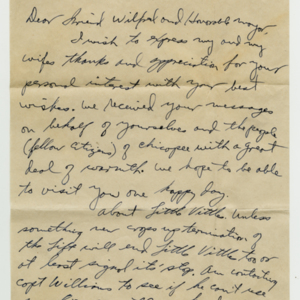 Dear Friend Wilfred and Honorable Mayor
I wish to express my and my
wifes thanks and appreciation for your
personal interest with your best
wishes. We received your messages
on behalf of yourselves and the people
(fellow citizens) of Chicopee with a great
deal of warmth. We hope to be able
to visit you one happy day.
About Little Vittles. Unless
something new crops up termination of
the lift will end Little Vittles too or
at least signal its stop. Am contacting
Capt Williams to see if he can't use